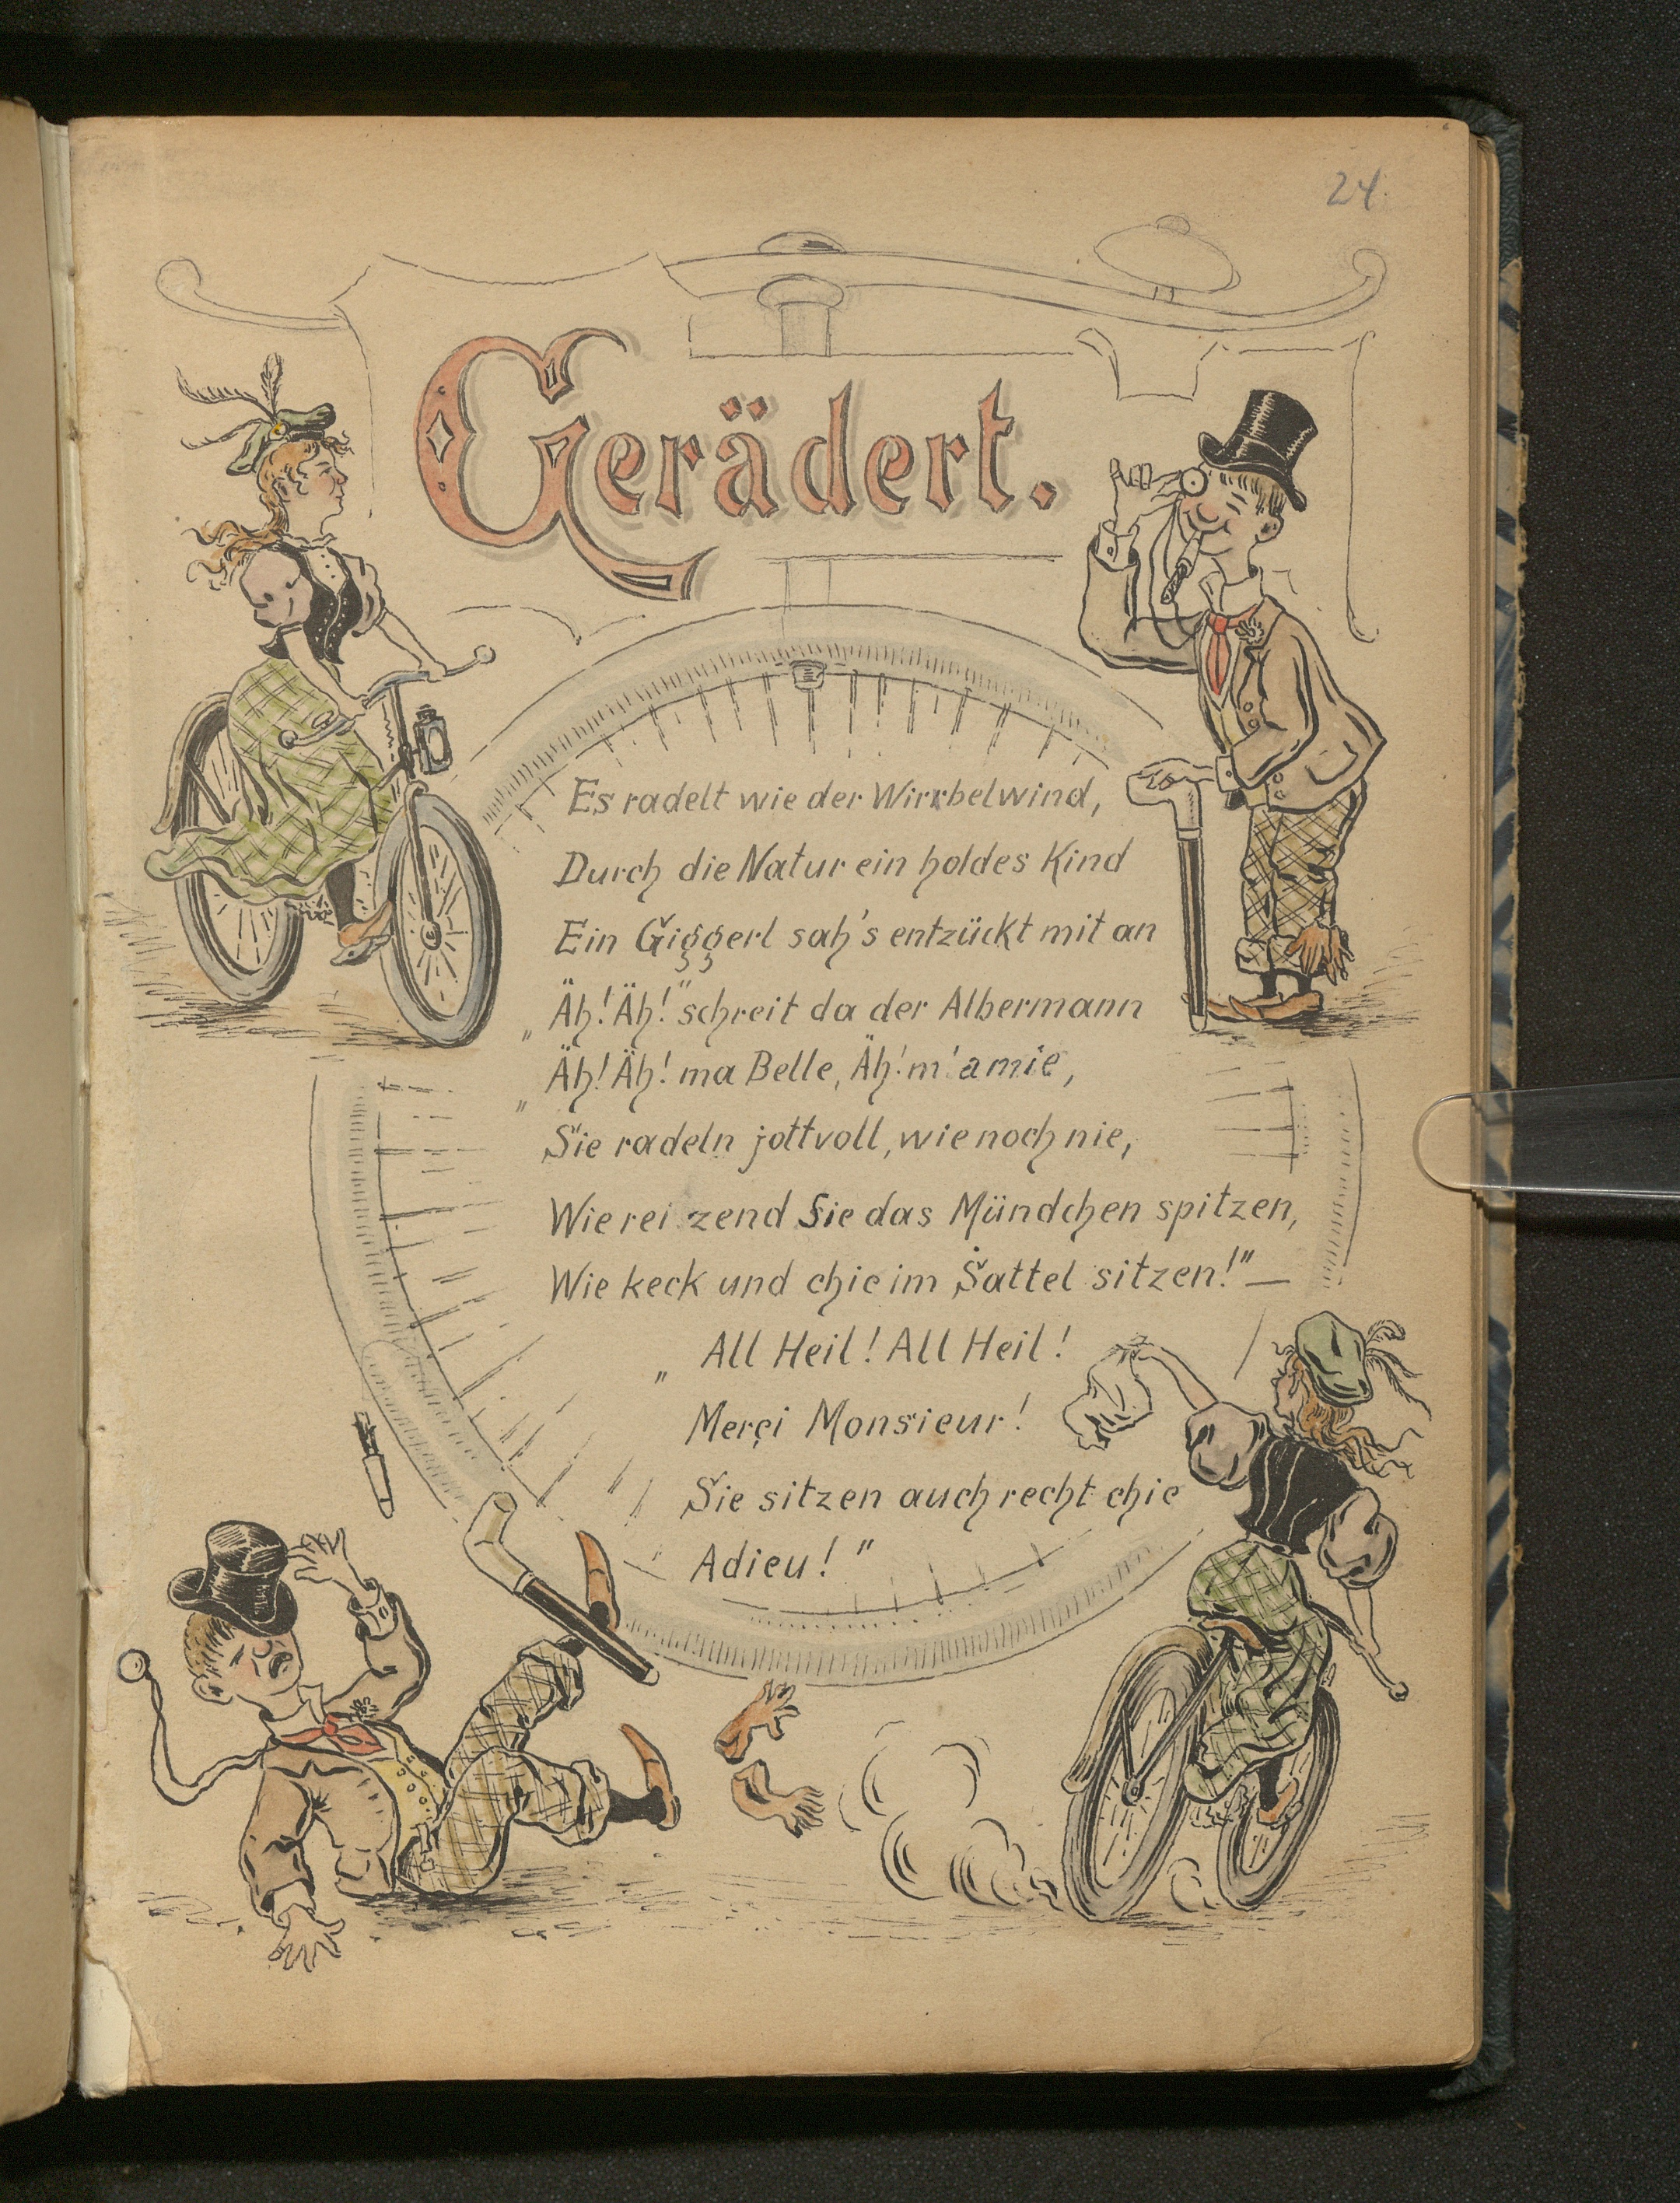 24.
Gerädert.
Es radelt wie der Wirrbelwind,
Durch die Natur ein holdes Kind
Ein Giggerl sah's entzückt mit an
„Äh! Äh!" schreit da der Albermann
„Äh! Äh! ma Belle, Äh! m'amie,
Sie radeln jottvoll, wie noch nie,
Wie reizend Sie das Mündchen spitzen,
Wie keck und chic im Sattel sitzen!" —
„All Heil! All Heil!
Merçi Monsieur!
Sie sitzen auch recht chic
Adieu!"